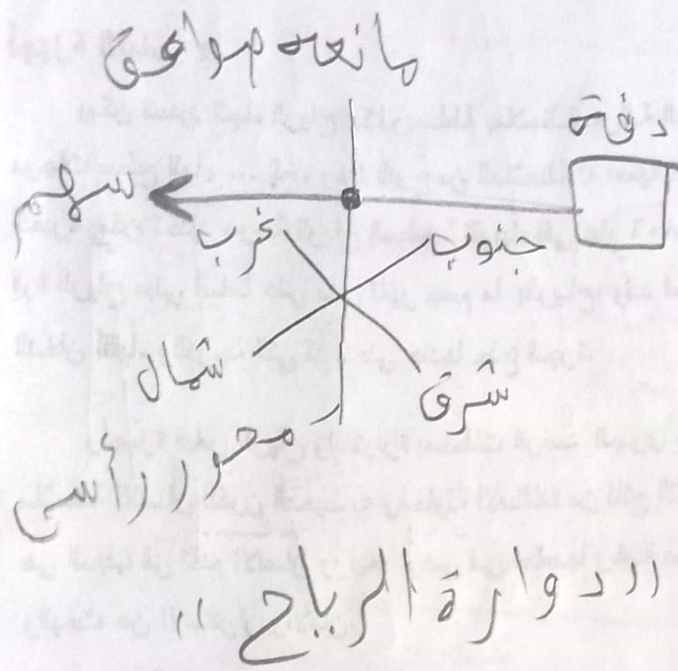 مانعه صواعق
دفة
سهم
غرب
جنوب
شمال
شرق
محور رأسى
"دوارة الرياح"